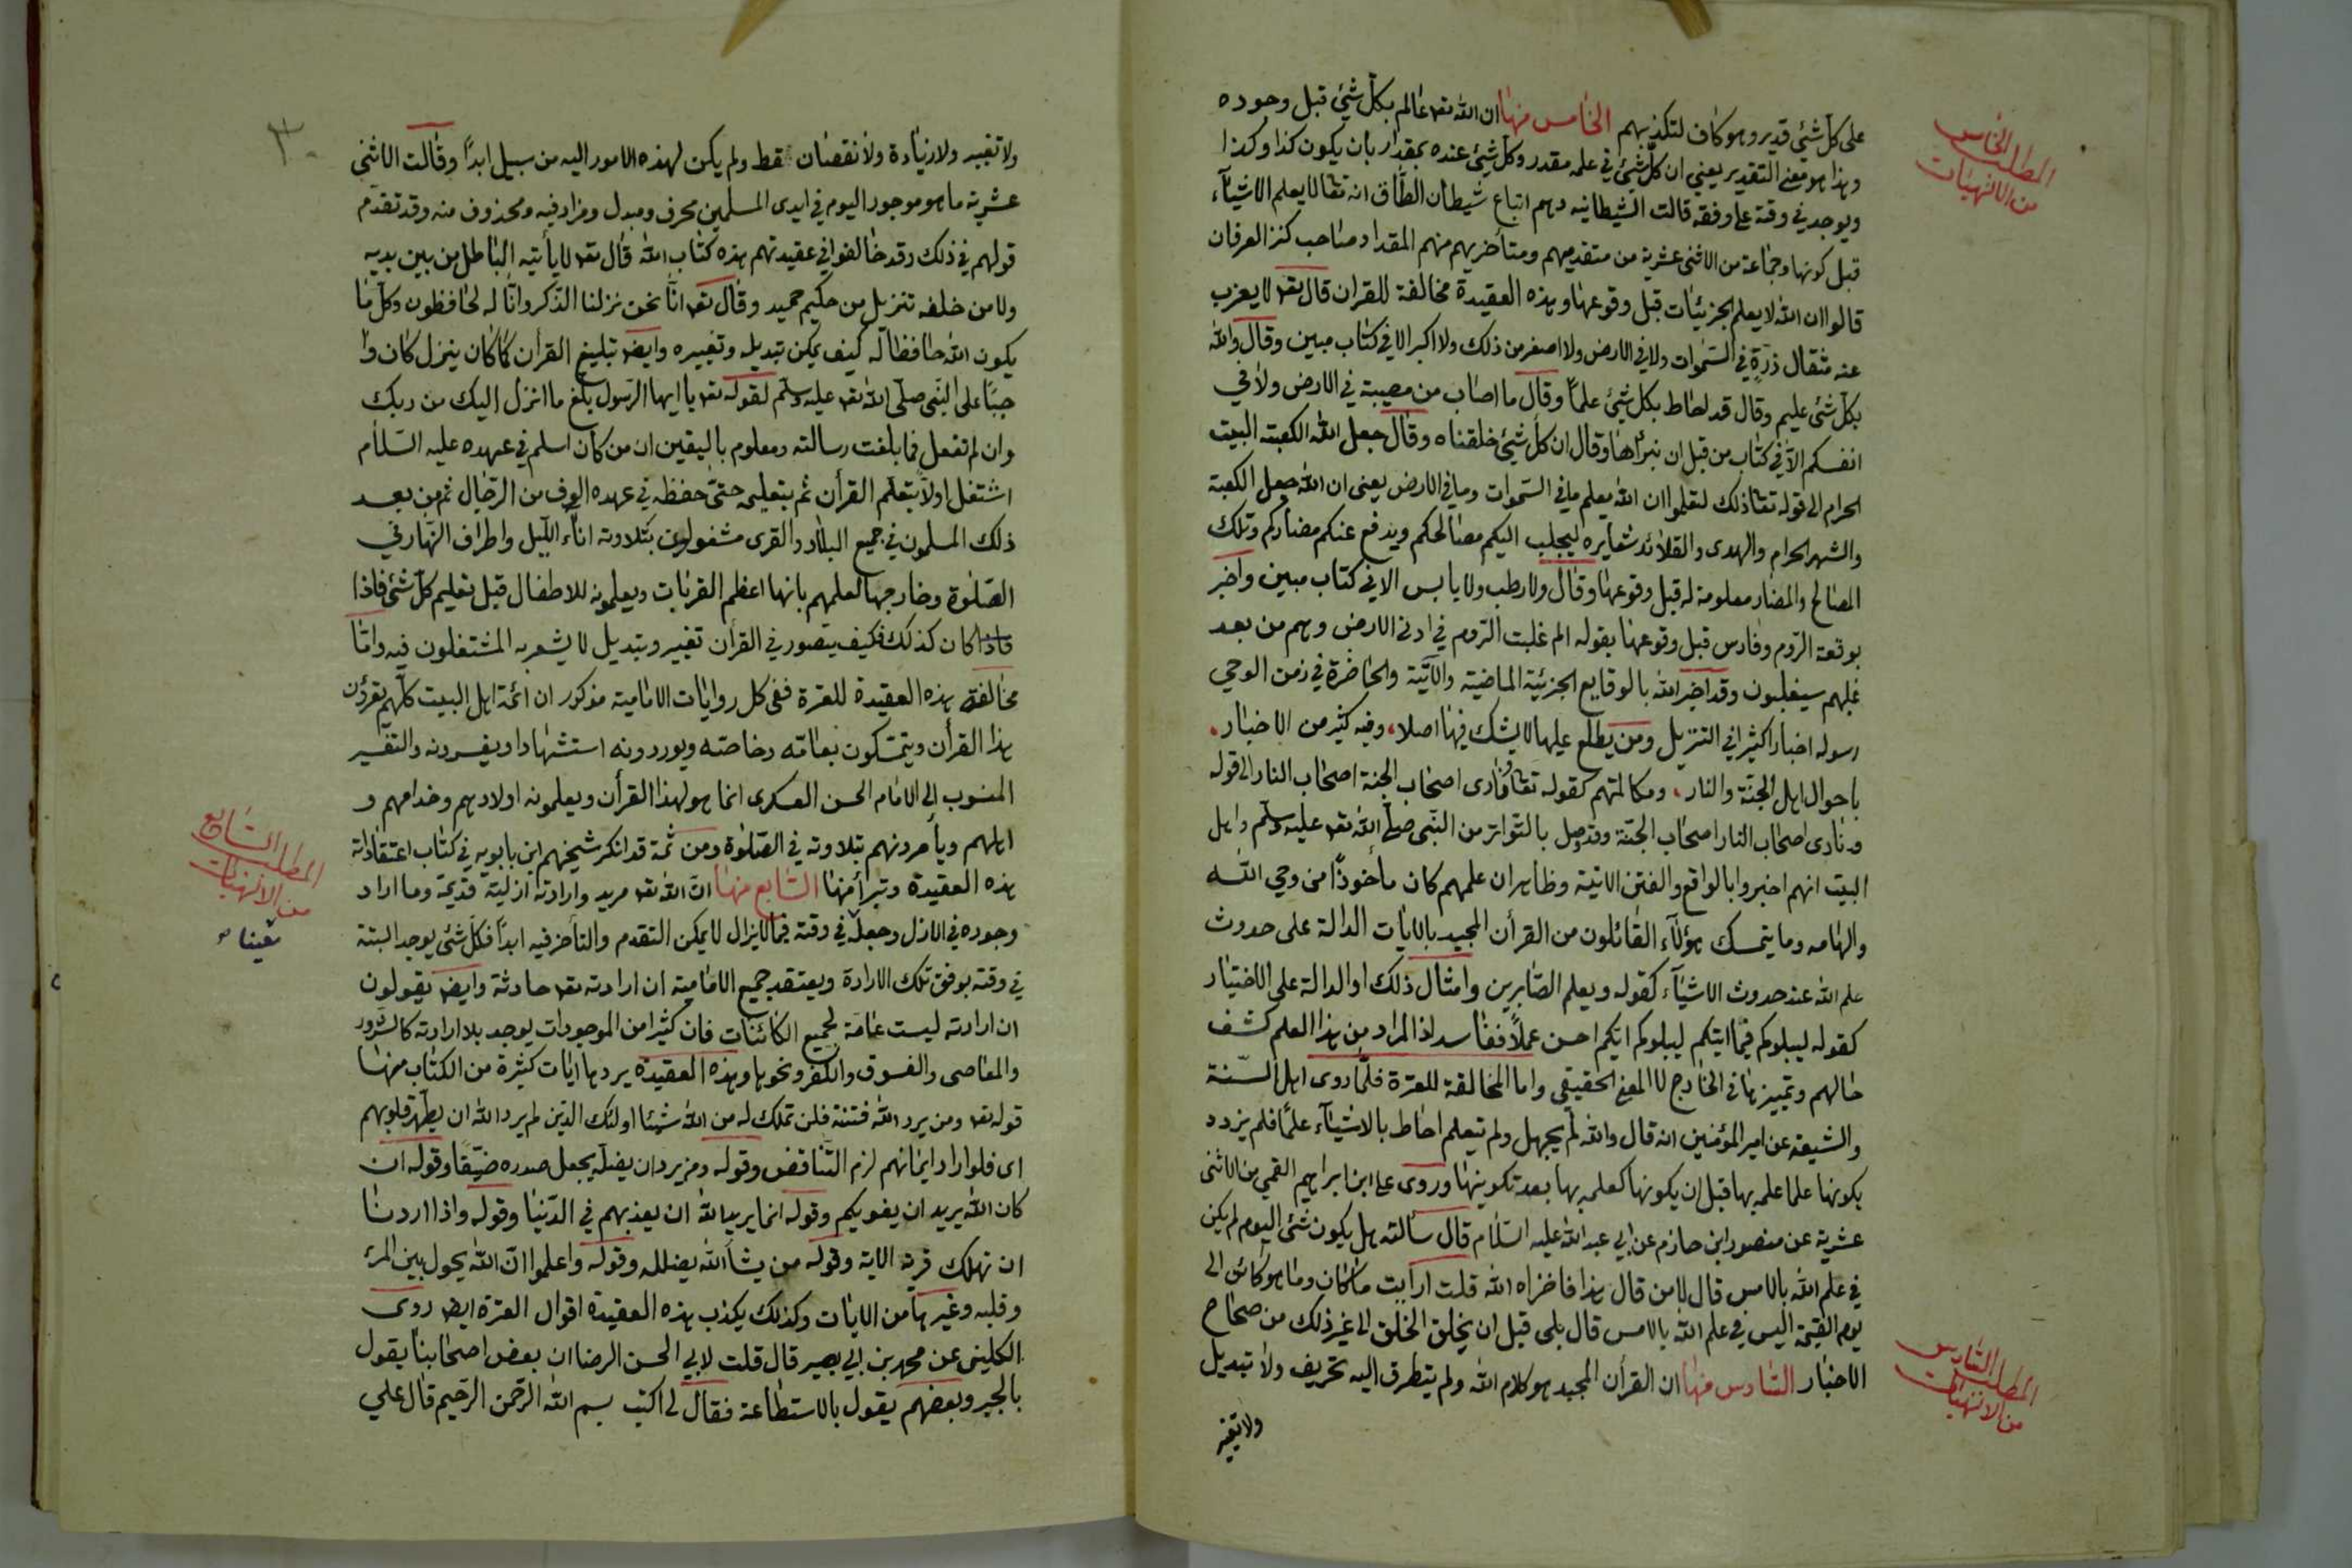 على كل شئ قدير وهو كاف لتكذيبهم الخامس منها ان الله تعه عالم بكل شئ قبل وجوده
وهذا هو معنى التقدير يعني ان كل شئ في علمه مقدر وكل شئ عنده بمقدار بان يكون كذا وكذا
ويوجد في وقته على وفقه قالت الشيطانيه وهم اتباع شيطان الطاق انه تعالى لا يعلم الاشيآء
قبل كونها وجماعة من الاثنى عشرية من متقدميهم ومتأخريهم منهم المقداد صاحب كنز العرفان
قالوا ان الله لا يعلم الجزئيات قبل وقوعها وهذه العقيدة مخالفة للقران قال تعه لا يعزب
عنه مثقال ذرة في السموات ولا في الارض ولا اصغر من ذلك ولا اكبر الا في كتاب مبين وقال والله
بكل شئ عليم وقال قد احاط بكل شئ علما وقال ما اصاب من مصيبة في الارض ولا في
انفسكم الا في كتاب من قبل ان نبرأها وقال ان كل شئ خلقناه وقال جعل الله الكعبة البيت
الحرام الى قوله تعا ذلك لتعلموا ان الله يعلم ما في السموات وما في الارض يعنى ان الله جعل الكعبة
والشهر الحرام والهدى والقلائد شعايره ليجلب اليكم مصالحكم ويدفع عنكم مضاركم وتلك
المصالح والمضار معلومة له قبل وقوعها وقال ولا رطب ولا يابس الا في كتاب مبين واخبر
بوقعة الروم وفارس قبل وقوعها بقوله الم غلبت الروم في ادنى الارض وهم من بعد
غلبهم سيغلبون وقد اخبر الله بالوقايع الجزئية الماضية والآتية والحاضرة في زمن الوحي
رسوله اخبارا كثيرا في التنزيل ومن يطلع عليها لا يشك فيها اصلا، وفيه كثير من الاخبار
باحوال اهل الجنة والنار، ومكالمتهم كقوله تعا ونادى اصحاب الجنة اصحاب النار الى قوله
ونادى اصحاب النار اصحاب الجنة وقد وصل بالتواتر من النبى صلى الله تعه عليه وسلم واهل
البيت انهم اخبروا بالواقع والفتن الاتية وظاهر ان علمهم كان مأخوذا من وحي الله
والهامه وما يتمسك هؤلآء القائلون من القرأن المجيد بالايات الدالة على حدوث
علم الله عند حدوث الاشيآء كقوله ويعلم الصابرين وامثال ذلك او الدالة على الاختيار
كقوله ليبلوكم فيما اتيكم ليبلوكم ايكم احسن عملا ففاسد اذ المراد من هذا العلم كشف
حالهم وتمييزها في الخارج لا المعنى الحقيقي واما المخالفة للعترة فلما روى اهل السنة
والشيعة عن امير المؤمنين انه قال والله لم يجهل ولم يتعلم احاط بالاشيآء علما فلم يزدد
بكونها علما علمه بها قبل ان يكونها كعلمه بها بعد تكوينها وروى على ابن ابراهيم القمي من الاثنى
عشرية عن منصور ابن حازم عن ابي عبد الله عليه السلام قال سألته هل يكون شئ اليوم لم يكن
في علم الله بالامس قال لا من قال هذا فاخزاه الله قلت ارايت ما كان وما هو كائن الى
يوم القيمة اليس في علم الله بالامس قال بلى قبل ان يخلق الخلق الى غير ذلك من صحاح
الاخبار السادس منها ان القرأن المجيد هو كلام الله ولم يتطرق اليه تحريف ولا تبديل
ولا تغير
المطلب الخامس
من الالهيات
المطلب السادس
من الالهيات
٣٠
ولا تغيير ولا زيادة ولا نقصان قط ولم يكن لهذه الامور اليه من سبيل ابدا وقالت الاثنى
عشرية ما هو موجود اليوم في ايدى المسلمين محرف ومبدل ومزاد فيه ومحذوف منه وقد تقدم
قولهم في ذلك وقد خالفوا في عقيدتهم هذه كتاب الله قال تعه لا يأتيه الباطل من بين يديه
ولا من خلفه تنزيل من حكيم حميد وقال تعه انا نحن نزلنا الذكر وانا له لحافظون وكل ما
يكون الله حافظا له كيف يمكن تبديله وتغييره وايضا تبليغ القرأن كما كان ينزل كان وا
جبا على النبى صلى الله تعه عليه وسلم لقوله تعه يا ايها الرسول بلغ ما انزل اليك من ربك
وان لم تفعل فما بلغت رسالته ومعلوم باليقين ان من كان اسلم في عهده عليه السلام
اشتغل اولا بتعلم القرأن ثم بتعليمه حتى حفظه في عهده الوف من الرجال ثم من بعد
ذلك المسلمون في جميع البلاد والقرى مشغولون بتلاوته اناء الليل واطراف النهار في
الصلوة وخارجها لعلمهم بانها اعظم القربات ويعلمونه للاطفال قبل تعليم كل شئ فاذا
كان كذلك فكيف يتصور في القرأن تغيير وتبديل لا يشعر به المشتغلون فيه واما
مخالفة هذه العقيدة للعترة ففى كل روايات الامامية مذكور ان ائمة اهل البيت كلهم يقرؤن
هذا القرأن ويتمسكون بعامه وخاصه ويوردونه استشهادا ويفسرونه والتفسير
المنسوب الى الامام الحسن العسكرى انما هو لهذا القرأن ويعلمونه اولادهم وخدامهم و
اهلهم ويأمرونهم بتلاوته في الصلوة ومن ثمة قد انكر شيخهم ابن بابويه في كتاب اعتقاداته
هذه العقيدة وتبرأ منها السابع منها ان الله تعه مريد وارادته ازلية قديمة وما اراد
وجوده في الازل وجعله في وقته فيما لا يزال لا يمكن التقدم والتأخر فيه ابدا فكل شئ يوجد البتة
في وقته بوفق تلك الارادة ويعتقد جميع الامامية ان ارادته تعه حادثة وايضا يقولون
ان ارادته ليست عامة لجميع الكائنات فان كثيرا من الموجودات يوجد بلا ارادته كالشرور
والمعاصى والفسوق والكفر ونحوها وهذه العقيدة يردها ايات كثيرة من الكتاب منها
قوله تعه ومن يرد الله فتنته فلن تملك له من الله شيئا اولئك الذين لم يرد الله ان يطهر قلوبهم
اى فلو اراد ايمانهم لزم التناقض وقوله ومن يرد ان يضله يجعل صدره ضيقا وقوله ان
كان الله يريد ان يغويكم وقوله انما يريد الله ان يعذبهم في الدنيا وقوله واذا اردنا
ان نهلك قرية الاية وقوله من يشأ الله يضلله وقوله واعلموا ان الله يحول بين المرء
وقلبه وغيرها من الايات وكذلك يكذب هذه العقيدة اقوال العترة ايضا روى
الكلينى عن محمد بن ابي بصير قال قلت لابي الحسن الرضا ان بعض اصحابنا يقول
بالجبر وبعضهم يقول بالاستطاعة فقال لى اكتب بسم الله الرحمن الرحيم قال علي
المطلب السابع
من الالهيات